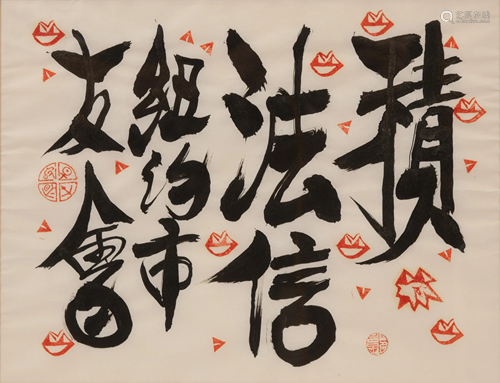 積
法信
紐約市
友會